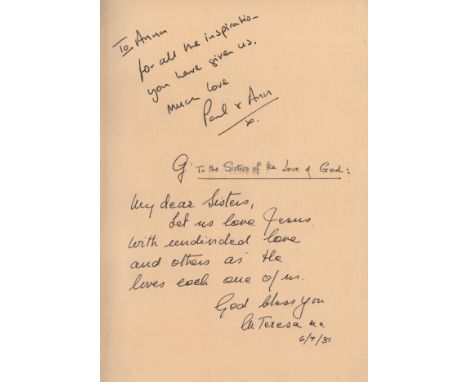 To Anna
for all the inspiration
you have given us,
Much love
Paul & Ann
x.
G To the Sisters of the Love of God:
My dear Sisters,
Let us love Jesus
with undivided love
and others as He
loves each one of us.
God bless you
M Teresa mc
6/7/81